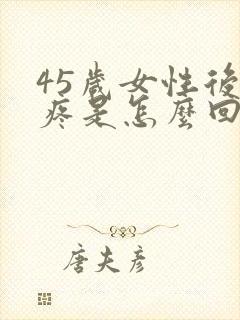 45歲女性後
疼是怎麼回
唐夫彥